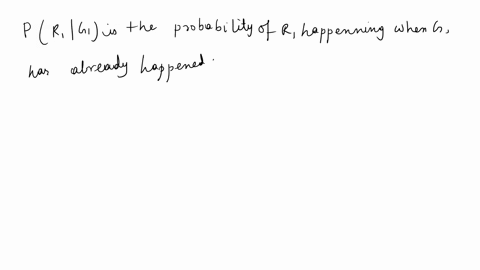 P(R₁|G₁) is the probability of R₁ happenning when G₁
has already happened.